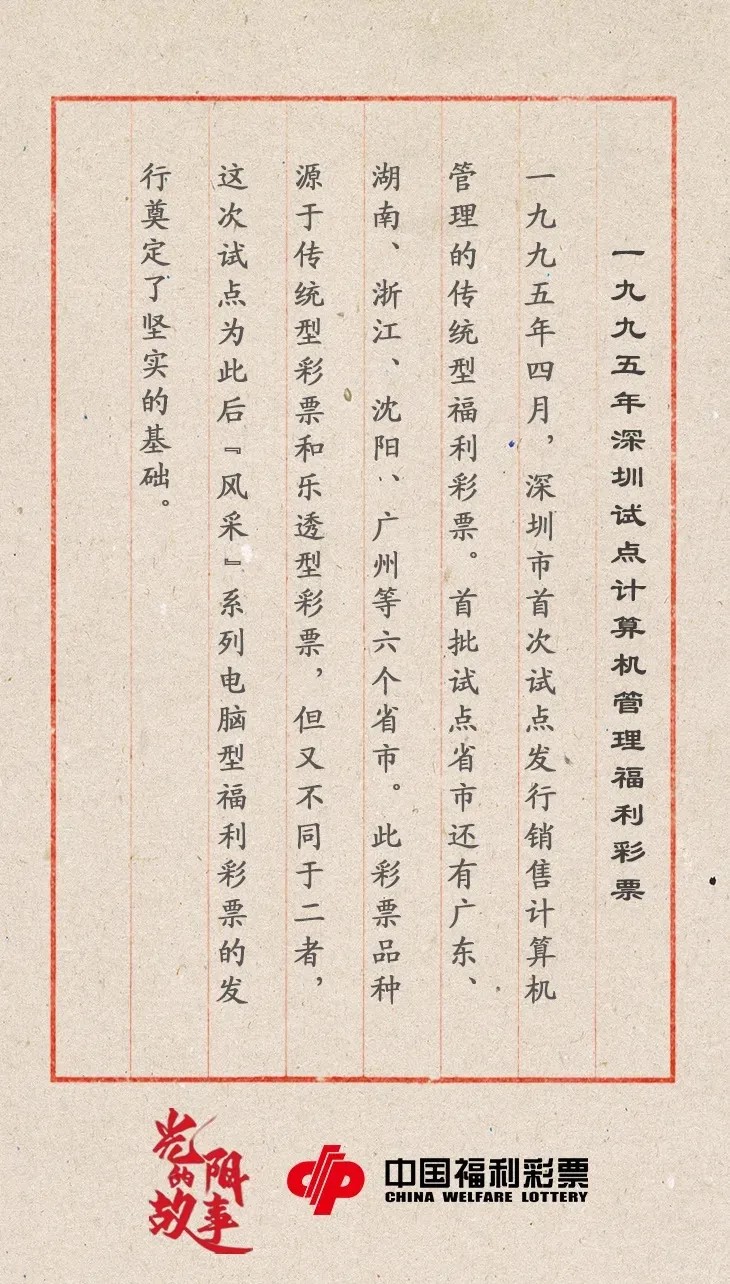 一九九五年深圳试点计算机管理福利彩票
一九九五年四月，深圳市首次试点发行销售计算机
管理的传统型福利彩票。首批试点省市还有广东、
湖南、浙江、沈阳、广州等六个省市。此彩票品种
源于传统型彩票和乐透型彩票，但又不同于二者，
这次试点为此后『风采』系列电脑型福利彩票的发
行奠定了坚实的基础。
光阴的故事
中国福利彩票
CHINA WELFARE LOTTERY